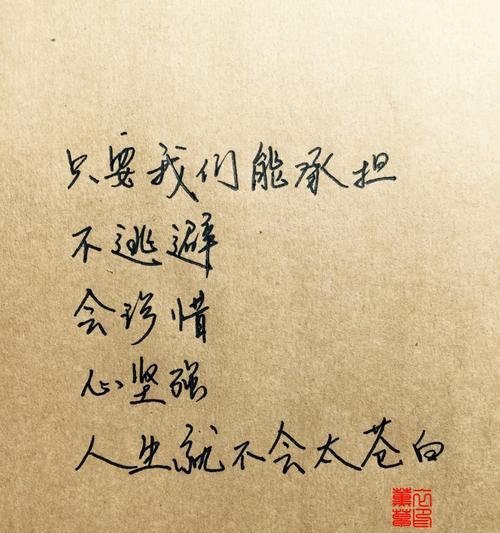 只要我们能承担
不逃避
会珍惜
心坚强
人生就不会太苍白